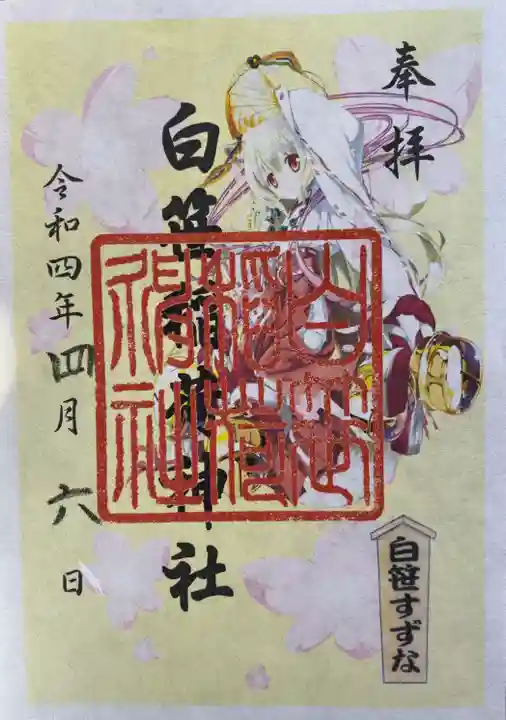 奉拝
白笹稲荷神社
白笹
稲荷
神社
令和四年四月六日
白笹すずな